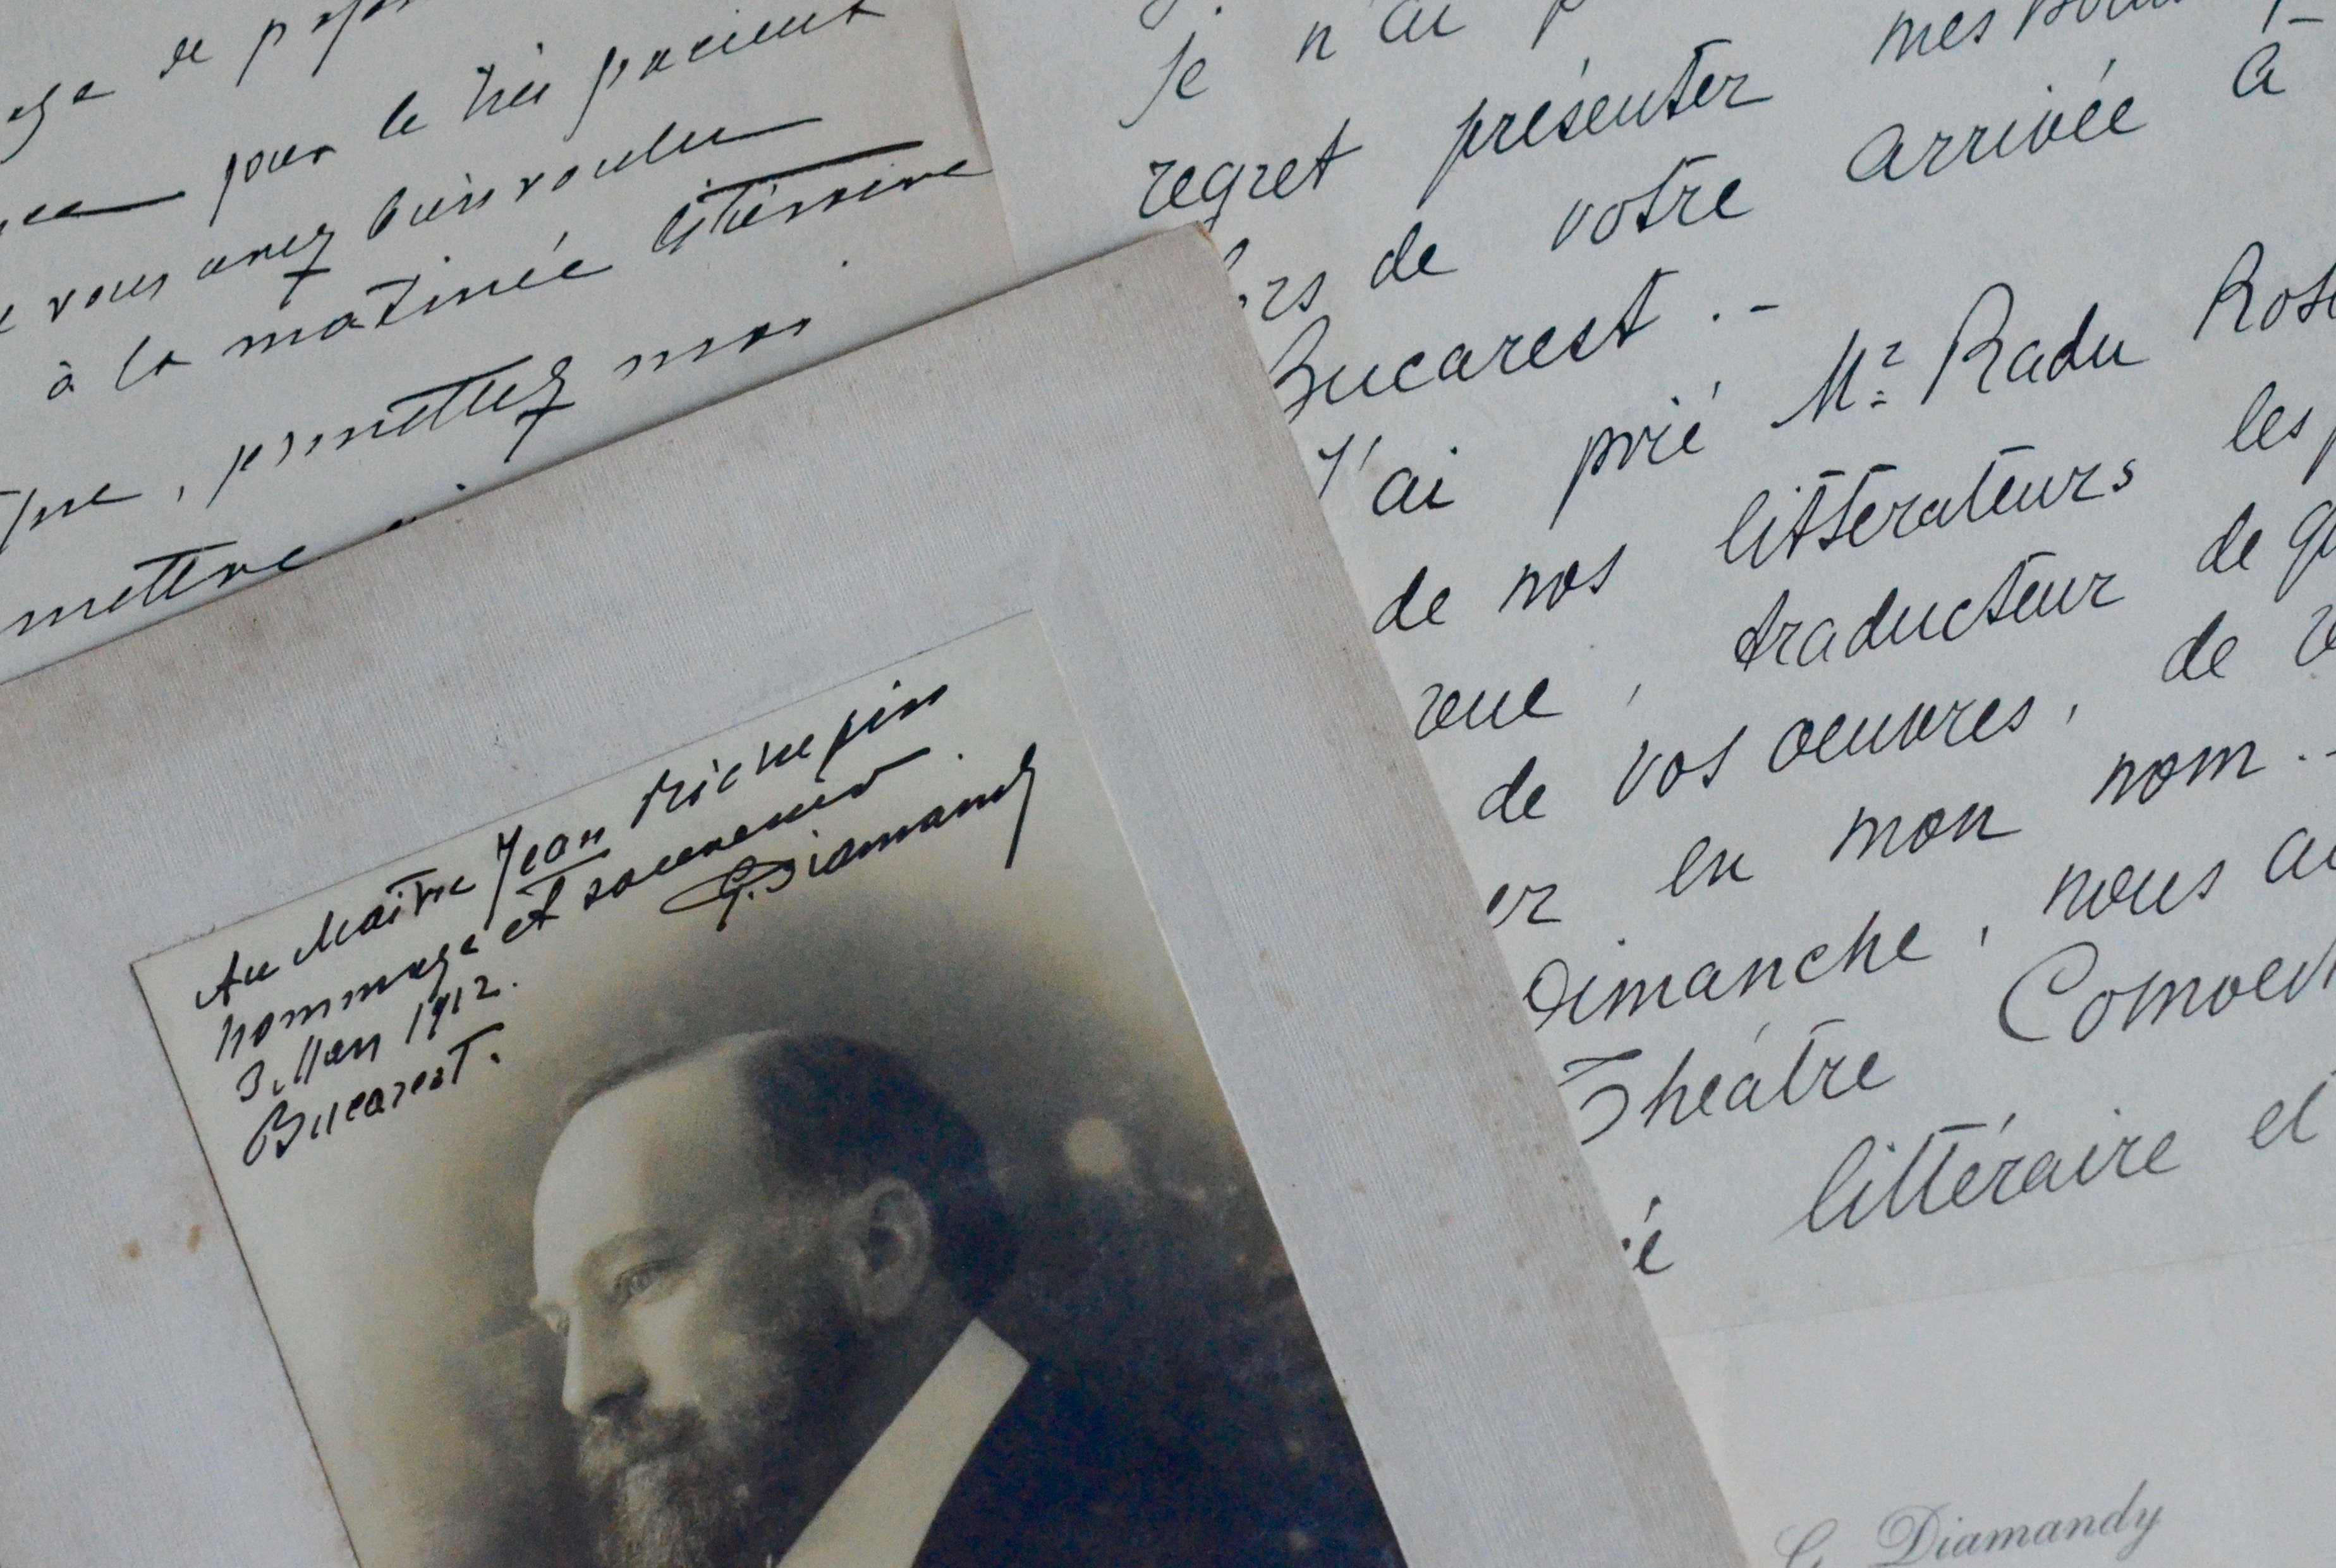 de
pour le très précieux
vous avez bien voulu
à la matinée littéraire
permettez moi
mettre
Je n'ai
regret présenter mes
de votre arrivée à
Bucarest . -
J'ai prié Mr Radu
de nos littérateurs les
, traducteur de
de vos oeuvres , de
er en mon nom . -
Dimanche , nous
Théâtre
littéraire et
Au Maître Jean Richepin
hommage et souvenir .
G. Diamandy
3 Mars 1912.
Bucarest.
G. Diamandy